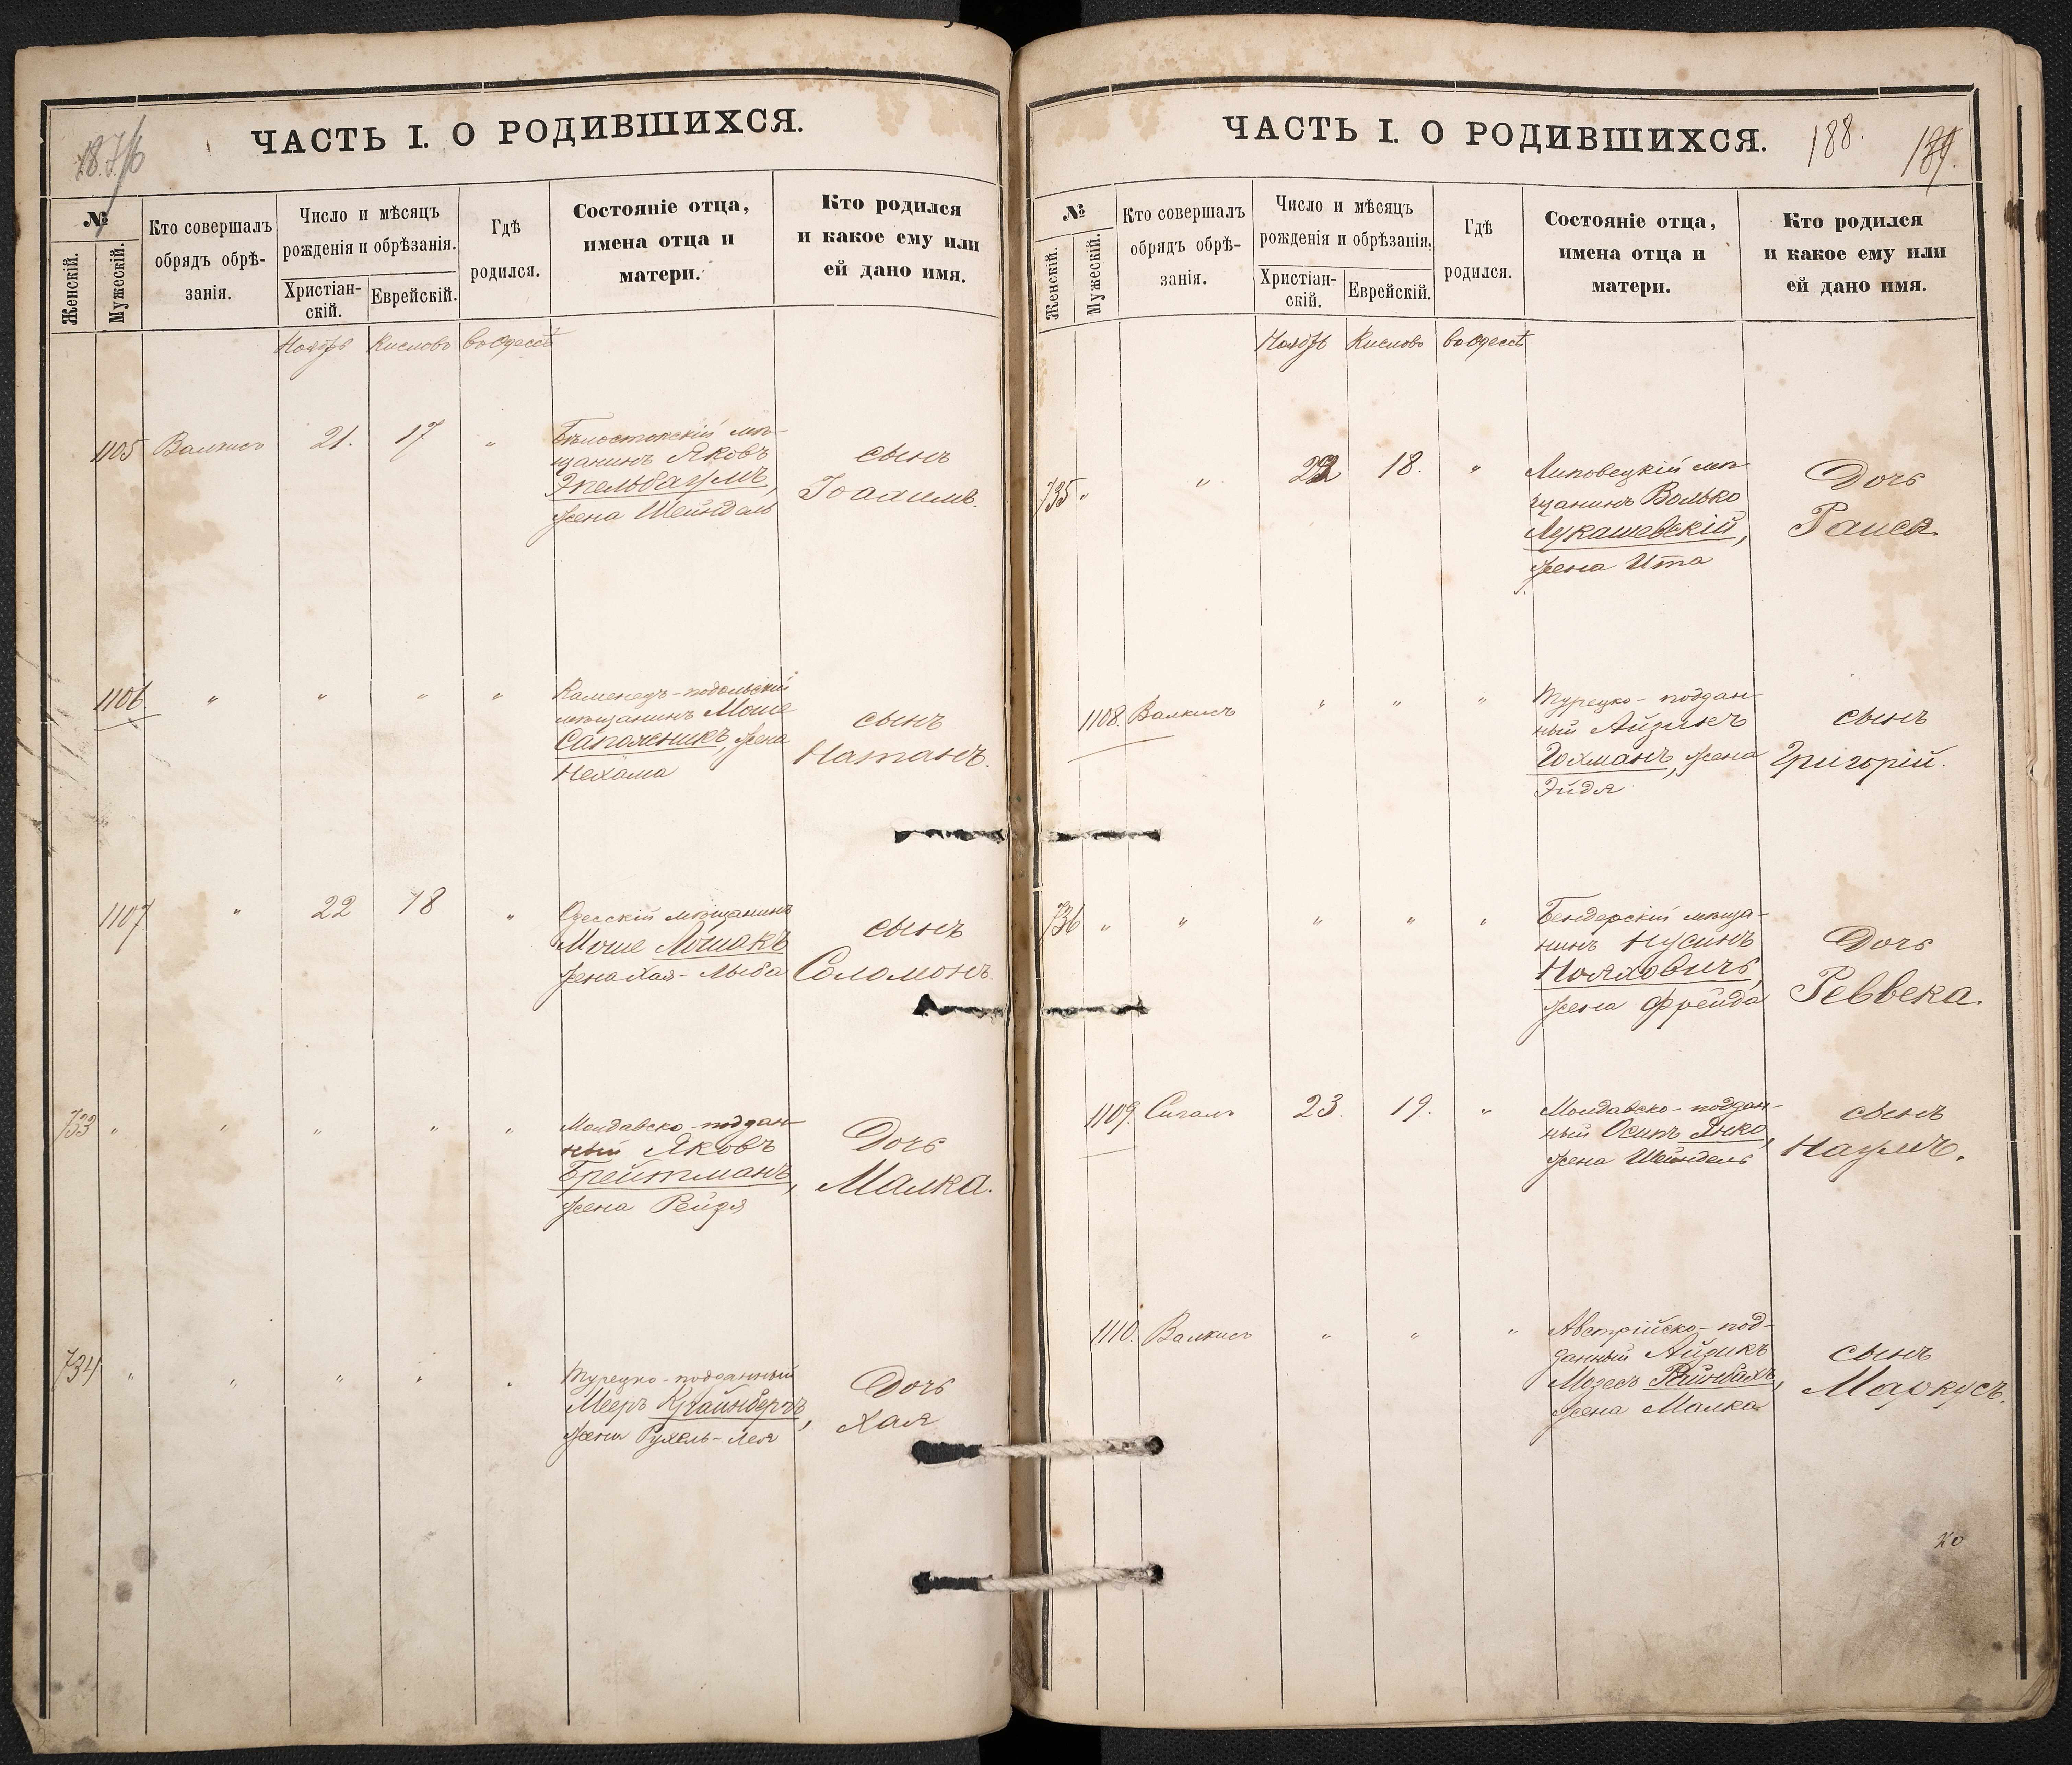 1876
ЧАСТЬ I. О РОДИВШИХСЯ.
№
Женскій.
Мужескій.
Кто совершалъ
обрядъ обрѣ-
занія.
Число и мѣсяцъ
рожденія и обрѣзанія.
Христіан-
скій.
Еврейскій.
Гдѣ
родился.
Состояніе отца,
имена отца и
матери.
Кто родился
и какое ему или
ей дано имя.
Ноябрь Кислово во Одессѣ
1105 Валкисъ 21. 17 "
Бѣлостокскій мѣ-
щанинъ Яковъ
Эпельбаумъ,
жена Шейндель
сынъ
Іоахимъ.
1106 " " " "
Каменецъ-подольскій
мѣщанинъ Моше
Сапожникъ, жена
Нехама
сынъ
Натанъ.
1107 " 22 18 "
Одесскій мѣщанинъ
Моше Лошакъ
жена Хая-Лыба
сынъ
Соломонъ.
733 " " " " "
Молдавско-поддан-
ный Яковъ
Брейтманъ,
жена Рейзя
Дочь
Малка.
734 " " " " "
Турецко-подданный
Мееръ Крайнбергъ,
жена Рухель-Лея
Дочь
Хая
ЧАСТЬ I. О РОДИВШИХСЯ.
188.
№
Женскій.
Мужескій.
Кто совершалъ
обрядъ обрѣ-
занія.
Число и мѣсяцъ
рожденія и обрѣзанія.
Христіан-
скій.
Еврейскій.
Гдѣ
родился.
Состояніе отца,
имена отца и
матери.
Кто родился
и какое ему или
ей дано имя.
Ноябрь Кислово во Одессѣ
735 " " 22 18. "
Липовецкій мѣ-
щанинъ Волько
Лукашевскій,
жена Ита
Дочь
Раиса.
1108. Валкисъ " " "
Турецко-поддан-
ный Айзикъ
Гохманъ, жена
Эйдя
сынъ
Григорій.
736 " " " " "
Бендерскій мѣща-
нинъ Нусинъ
Нояховичъ,
жена Фрейда
Дочь
Реввека.
1109. Сигалъ 23. 19. "
Молдавско-поддан-
ный Осипъ Янко,
жена Шейндель
сынъ
Наумъ.
1110. Валкисъ " " "
Австрійско-под-
данный Айзикъ
Мозесъ Райнбахъ,
жена Малка
сынъ
Маркусъ.